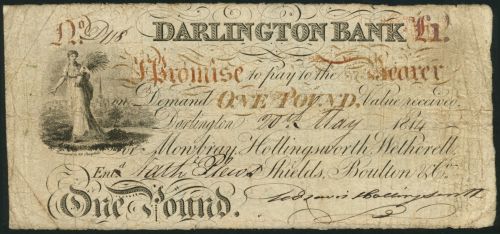 No. DARLINGTON BANK £1.
I Promise to pay to the Bearer
on Demand ONE POUND. Value received.
Darlington 20th May 1814
For Mowbray, Hollingsworth, Wetherell,
Entd. Shields, Boulton & Co.
One Pound. Hollingsworth